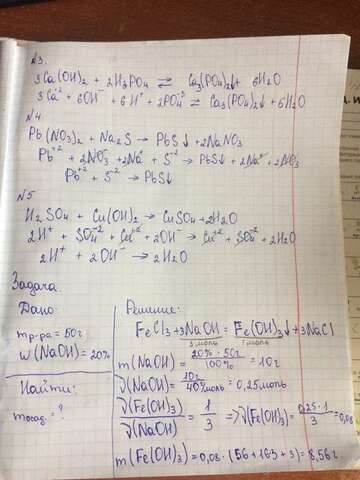 №3.
3Ca(OH)₂ + 2H₃PO₄ ⇌ Ca₃(PO₄)₂↓ + 6H₂O
3Ca⁺² + 6OH⁻ + 6H⁺ + 2PO₄⁻³ ⇌ Ca₃(PO₄)₂↓ + 6H₂O
№4
Pb(NO₃)₂ + Na₂S → PbS↓ + 2NaNO₃
Pb⁺² + 2NO₃⁻ + 2Na⁺ + S⁻² → PbS↓ + 2Na⁺ + 2NO₃
Pb⁺² + S⁻² → PbS↓
№5
H₂SO₄ + Cu(OH)₂ → CuSO₄ + 2H₂O
2H⁺ + SO₄⁻² + Cu⁺² + 2OH⁻ → Cu⁺² + SO₄⁻² + 2H₂O
2H⁺ + 2OH⁻ → 2H₂O
Задача.
Дано:
mр-ра = 50г
w(NaOH) = 20%
Найти:
mосад = ?
Решение:
FeCl₃ + 3NaOH = Fe(OH)₃↓ + 3NaCl
3моль 1моль
m(NaOH) = 20% · 50г / 100% = 10г
ν(NaOH) = 10г / 40моль = 0,25моль
ν(Fe(OH)₃) / ν(NaOH) = 1/3 ⇒ ν(Fe(OH)₃) = 0,25 · 1 / 3 = 0,08
m(Fe(OH)₃) = 0,08 · (56 + 16·3 + 3) = 8,56г